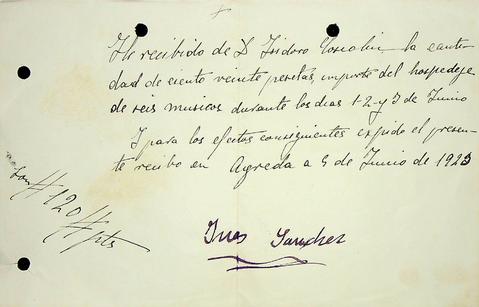 He recibido de D. Isidoro la canti-
dad de ciento veinte pesetas, importe del hospedaje
de seis musicos durante los dias 1-2-y 3 de Junio
Y para los efectos consiguientes expido el presen-
te recibo en Agreda a 5 de Junio de 1923
Son # 120 # pts
Sanchez